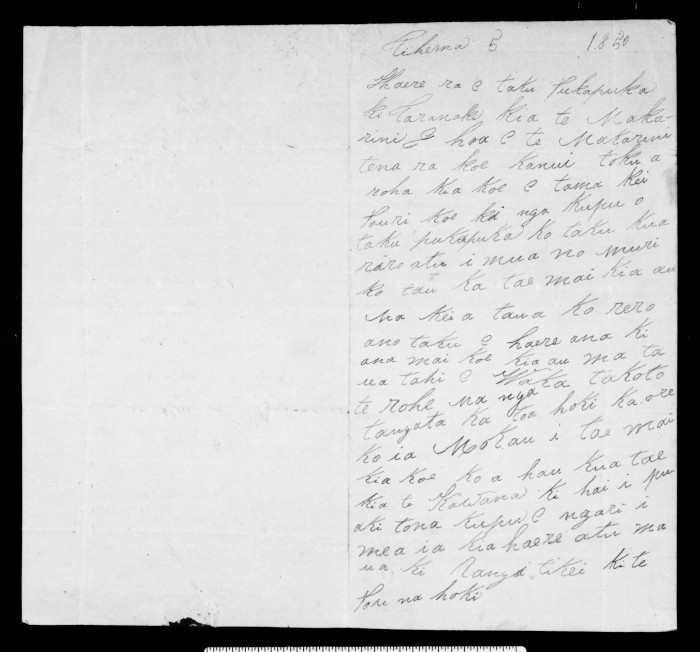 Tihema 5 1850
Haere ra e taku Pukapuka
ki Taranaki kia te Maka-
rini E hoa e te Makarini
tena ra koe kanui toku a
roha kia koe E tama kei
Pouri koe ki nga kupu o
taku pukapuka ko taku kua
riro atu i mua no muri
ko tau ka tae mai kia au
Na kei a taua ko rero
ano taku e haere ana ki
ana mai koe kia au ma ta
ua tahi e Waka takoto
te rohe na nga
tangata ka toa hoki ka ore
ko ia Mokau i tae mai
kia koe ko a hau kua tae
kia te Kawana ki hai i pu
aki tona kupu e ngari i
mea ia kia haere atu ma
ua ki Rangi tikei ki te
Pou na hoki